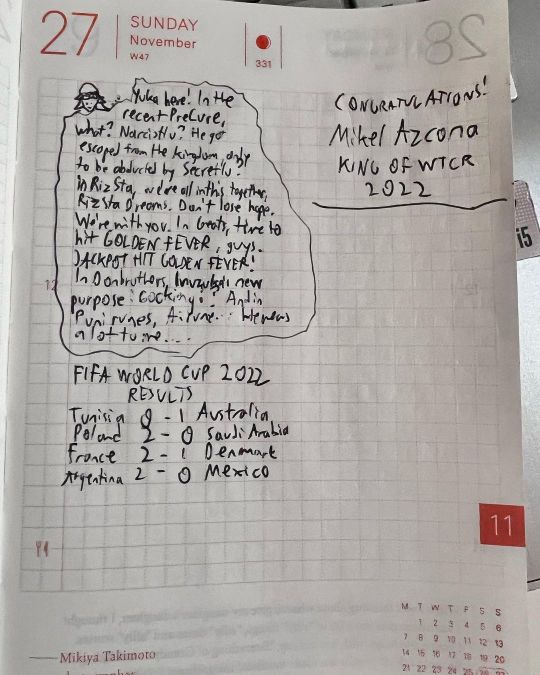 27
SUNDAY
November
W47
331
28
Yuka here! In the
recent PreCure,
What? Narcistlu? He got
escaped from the kingdom, only
to be abducted by Secretlu!
in RizSta, we're all in this together,
RizSta Dreams. Don't lose hope.
We're with you. In Geats, time to
hit GOLDEN FEVER, guys.
JACKPOT HIT GOLDEN FEVER!
In Donbrothers, new
purpose: Cooking!! And in
Puni runes, Airune...
a lot to me....
12
CONGRATULATIONS!
Mikel Azcona
KING OF WTCR
2022
i5
FIFA WORLD CUP 2022
RESULTS
Tunisia 0 - 1 Australia
Poland 2 - 0 Saudi Arabia
France 2 - 1 Denmark
Argentina 2 - 0 Mexico
11
Mikiya Takimoto
M T W T F S S
1 2 3 4 5 6
7 8 9 10 11 12 13
14 15 16 17 18 19 20
21 22 23 24 25 26 27